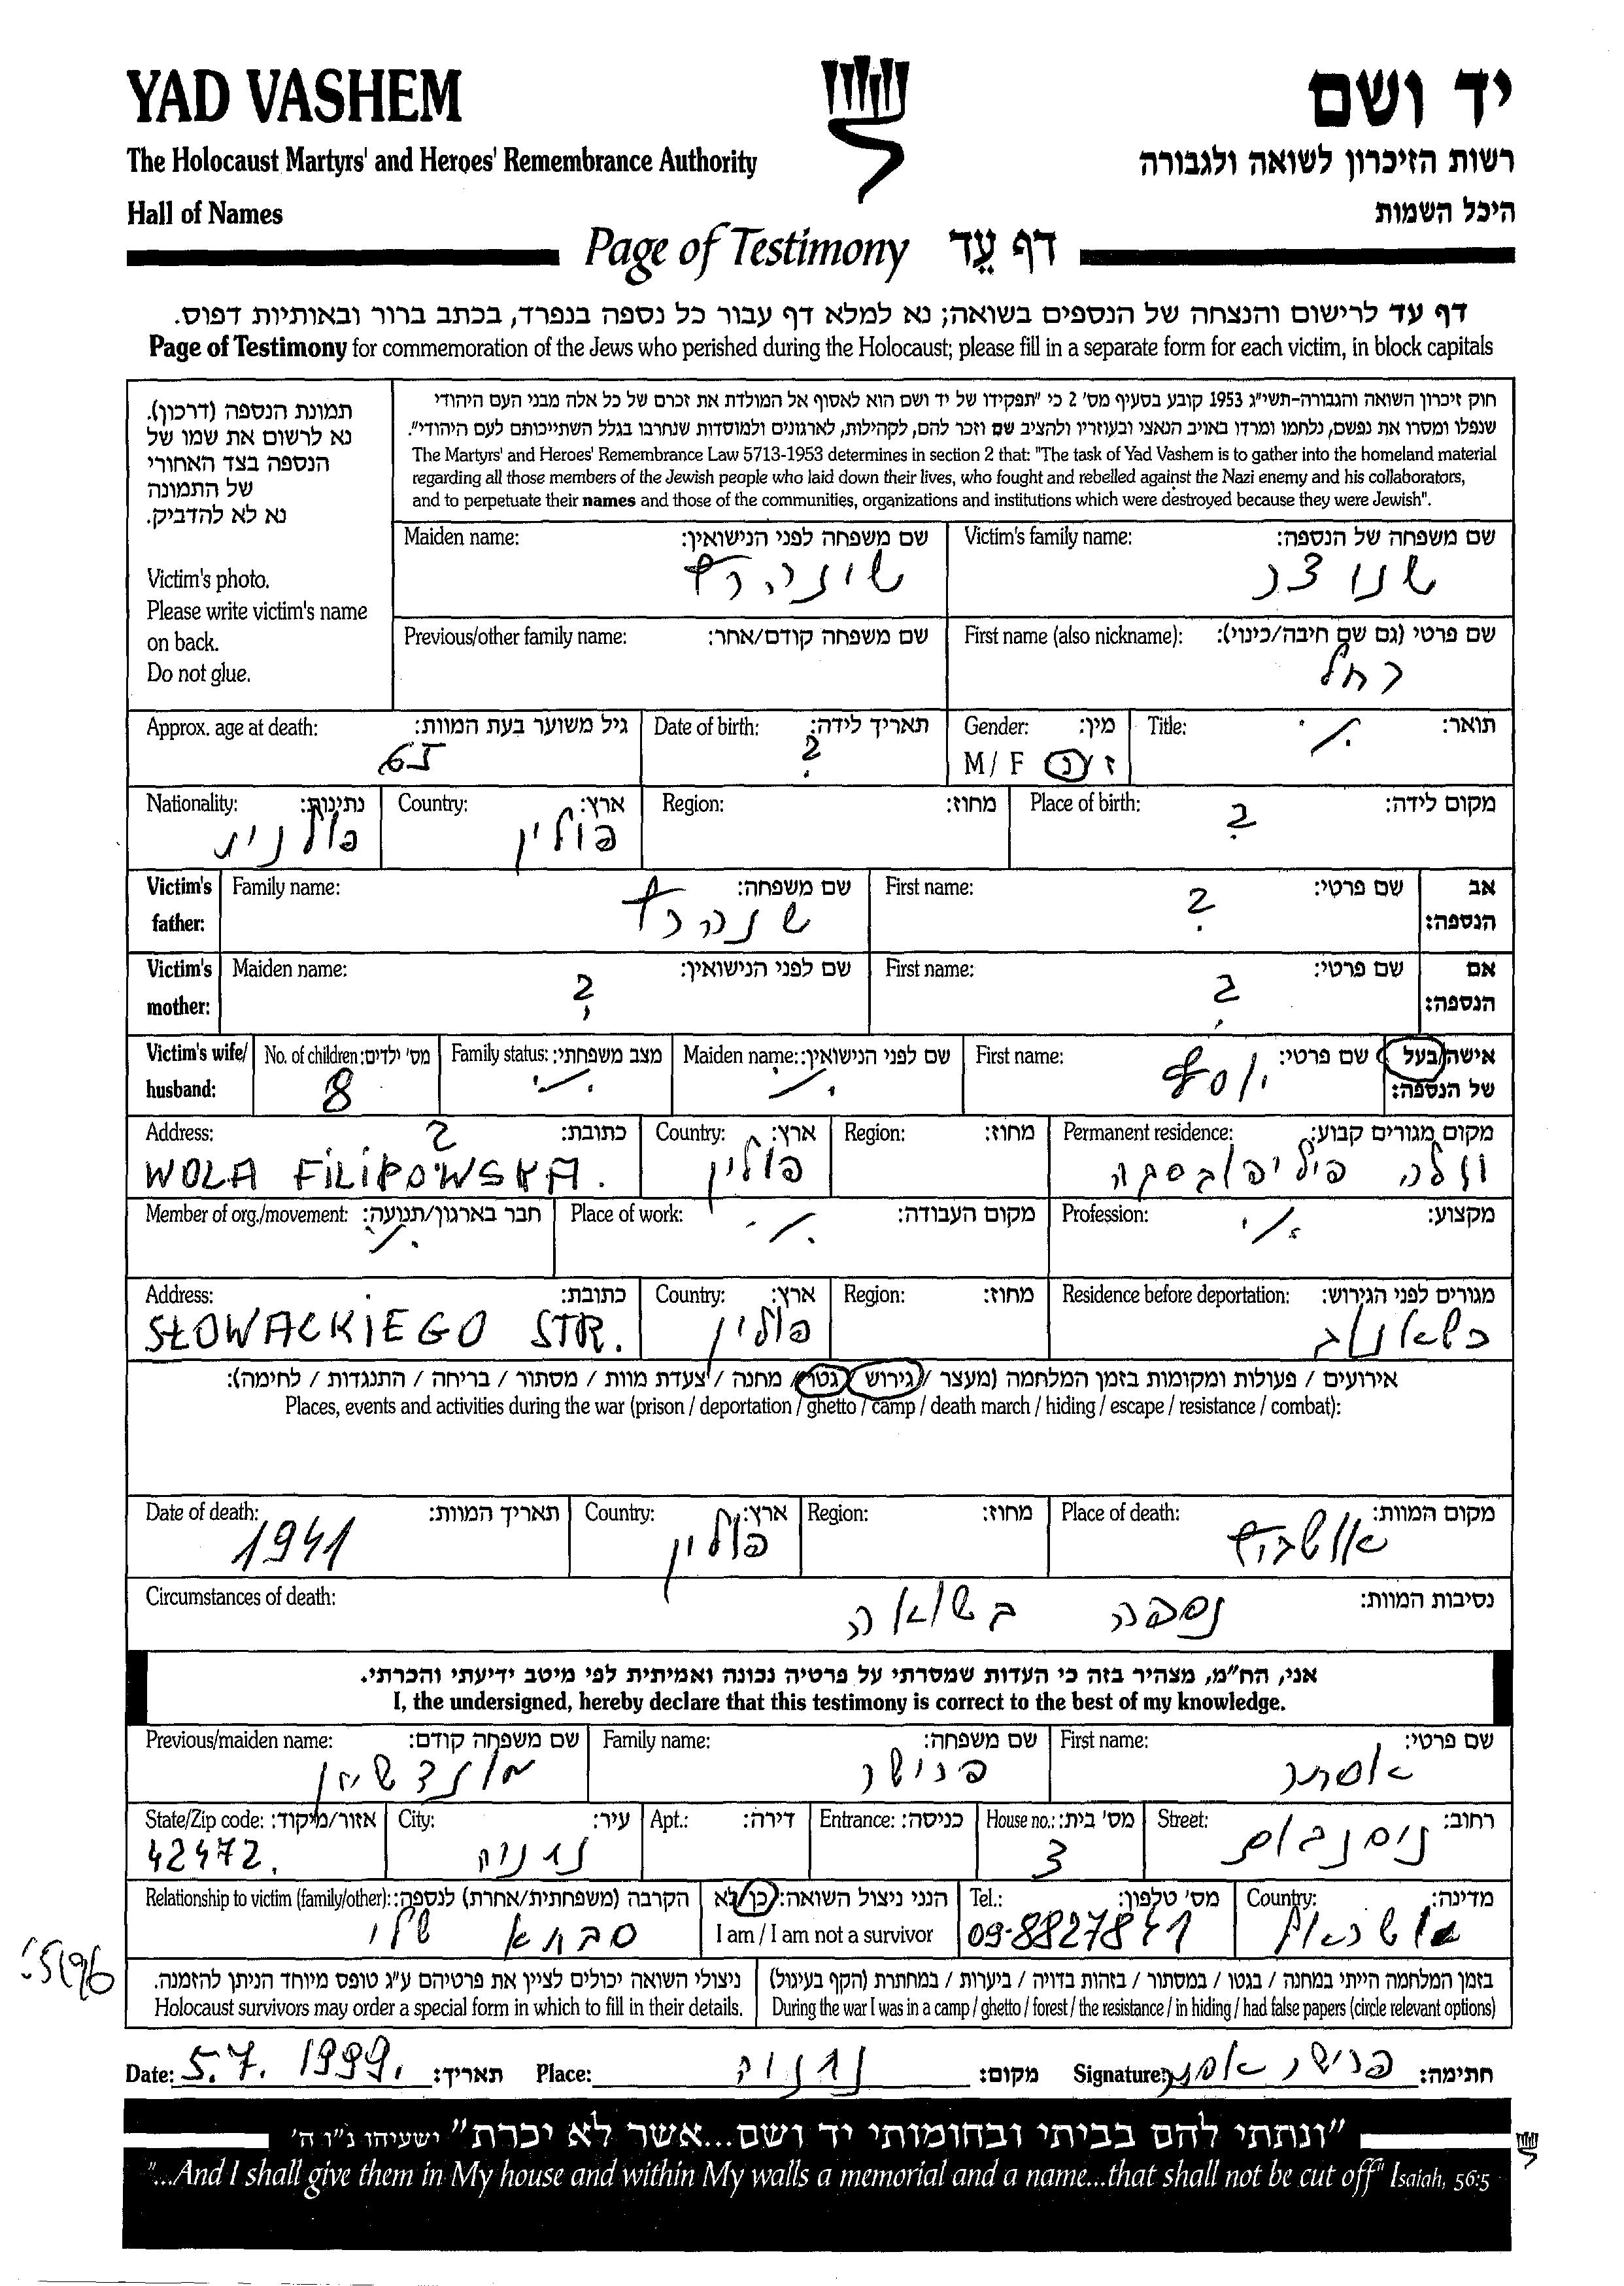 YAD VASHEM
יד ושם
The Holocaust Martyrs' and Heroes' Remembrance Authority
רשות הזיכרון לשואה ולגבורה
Hall of Names
היכל השמות
Page of Testimony דף עֵד
דף עד לרישום והנצחה של הנספים בשואה; נא למלא דף עבור כל נספה בנפרד, בכתב ברור ובאותיות דפוס.
Page of Testimony for commemoration of the Jews who perished during the Holocaust; please fill in a separate form for each victim, in block capitals
תמונת הנספה (דרכון).
נא לרשום את שמו של
הנספה בצד האחורי
של התמונה
נא לא להדביק.
Victim's photo.
Please write victim's name
on back.
Do not glue.
חוק זיכרון השואה והגבורה-תשי"ג 1953 קובע בסעיף מס' 2 כי "תפקידו של יד ושם הוא לאסוף אל המולדת את זכרם של כל אלה מבני העם היהודי
שנפלו ומסרו את נפשם, נלחמו ומרדו באויב הנאצי ובעוזריו ולהציב שם וזכר להם, לקהילות, לארגונים ולמוסדות שנחרבו בגלל השתייכותם לעם היהודי".
The Martyrs' and Heroes' Remembrance Law 5713-1953 determines in section 2 that: "The task of Yad Vashem is to gather into the homeland material
regarding all those members of the Jewish people who laid down their lives, who fought and rebelled against the Nazi enemy and his collaborators,
and to perpetuate their names and those of the communities, organizations and institutions which were destroyed because they were Jewish".
Victim's family name: שם משפחה של הנספה:
שנוצר
Maiden name: שם משפחה לפני הנישואין:
שינהרץ
First name (also nickname): שם פרטי (גם שם חיבה/כינוי):
רחל
Previous/other family name: שם משפחה קודם/אחר:
Title: תואר:
./.
Gender: מין:
M / F ז / נ
Date of birth: תאריך לידה:
?
Approx. age at death: גיל משוער בעת המוות:
65
Place of birth: מקום לידה:
?
Region: מחוז:
Country: ארץ:
פולין
Nationality: נתינות:
פולנית
Victim's father: אב הנספה:
First name: שם פרטי:
?
Family name: שם משפחה:
שנהרץ
Victim's mother: אם הנספה:
First name: שם פרטי:
?
Maiden name: שם לפני הנישואין:
?
Victim's wife/ husband: אישה/בעל של הנספה:
First name: שם פרטי:
יוסף
Maiden name: שם לפני הנישואין:
./.
Family status: מצב משפחתי:
./.
No. of children: מס' ילדים:
8
Permanent residence: מקום מגורים קבוע:
וולה פיליפובסקה
Region: מחוז:
Country: ארץ:
פולין
Address: כתובת:
?
WOLA FILIPOWSKA.
Profession: מקצוע:
./.
Place of work: מקום העבודה:
./.
Member of org./movement: חבר בארגון/תנועה:
./.
Residence before deportation: מגורים לפני הגירוש:
כשאנוב
Region: מחוז:
Country: ארץ:
פולין
Address: כתובת:
SŁOWACKIEGO STR.
אירועים / פעולות ומקומות בזמן המלחמה (מעצר / גירוש / גטו / מחנה / צעדת מוות / מסתור / בריחה / התנגדות / לחימה):
Places, events and activities during the war (prison / deportation / ghetto / camp / death march / hiding / escape / resistance / combat):
Place of death: מקום המוות:
אושביץ
Region: מחוז:
Country: ארץ:
פולין
Date of death: תאריך המוות:
1941
Circumstances of death: נסיבות המוות:
נספה בשואה
אני, הח"מ, מצהיר בזה כי העדות שמסרתי על פרטיה נכונה ואמיתית לפי מיטב ידיעתי והכרתי.
I, the undersigned, hereby declare that this testimony is correct to the best of my knowledge.
First name: שם פרטי:
אסתר
Family name: שם משפחה:
פנישר
Previous/maiden name: שם משפחה קודם:
מונדשיין
Street: רחוב:
ניסנבוים
House no.: מס' בית:
3
Entrance: כניסה:
Apt.: דירה:
City: עיר:
נתניה
State/Zip code: אזור/מיקוד:
42472.
Country: מדינה:
ישראל
Tel.: מס' טלפון:
09-8827841
הנני ניצול השואה: כן/לא
I am / I am not a survivor
Relationship to victim (family/other): הקרבה (משפחתית/אחרת) לנספה:
סבתא שלי
בזמן המלחמה הייתי במחנה / בגטו / במסתור / בזהות בדויה / ביערות / במחתרת (הקף בעיגול)
During the war I was in a camp / ghetto / forest / the resistance / in hiding / had false papers (circle relevant options)
ניצולי השואה יכולים לציין את פרטיהם ע"ג טופס מיוחד הניתן להזמנה.
Holocaust survivors may order a special form in which to fill in their details.
Date: 5.7.1999. תאריך: Place: נתניה מקום: Signature: פנישר אסתר חתימה:
"ונתתי להם בביתי ובחומותי יד ושם...אשר לא יכרת" ישעיהו נ"ו ה'
"...And I shall give them in My house and within My walls a memorial and a name...that shall not be cut off" Isaiah, 56:5